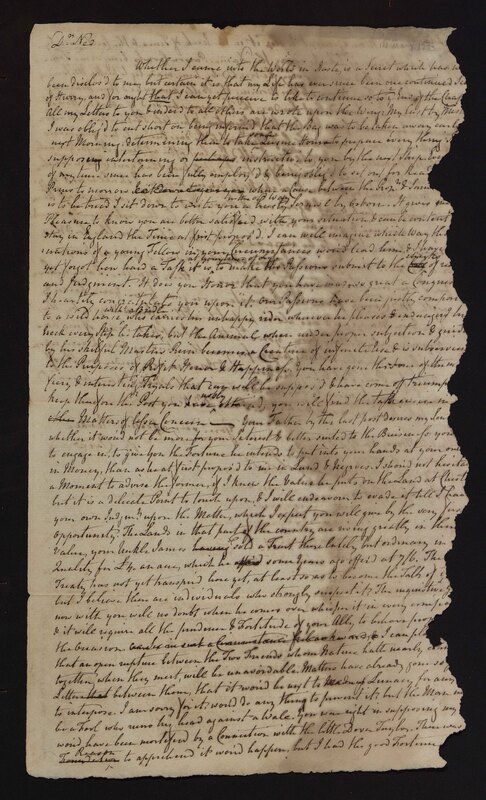 Dr Ned
Whether I came into the World in Haste, is a Secret which has n
been disclos'd to me, but certain it is that my Life has ever since been one continued S
of Hurry, and for ought that I can yet perceive is like to continue so to ye End of the Chap
All my Letters to you & indeed to all others are wrote upon the Wing. My last by
I was oblig'd to cut short on being inform'd that the Bag was to be taken away early
next Morning, determining then to take Leisure to prepare every thing
supposing entertaining or instructive to you by the next Ship
of my time since has been fully employ'd & being oblig'd to set out for
to morrow where a Cause between the
is to be tried I sit down to write you as hastily It gives me
Pleasure to know you are better satisfied with your situation & can be content
stay in England the Time at first propos'd. I can well imagine which Way the
inclinations of a young Fellow in your circumstances would lead him, & I have
yet forgot how hard a Task it is, to make the Passions submit to the of
and Judgment. It does you Honor that you have made so great a Conquest
I heartily congratulate you upon it. Our Passions have been justly compar
to a wild horse who carries his unhappy rider where he pleases & endangers his
Neck every step he takes, but this animal when under proper subjection & guided
by his skilful Masters Rein becomes a Creature of infinite Use & is subservient
to the Purposes of Profit Honor & Happiness. You have gone thro' one of the
fiery & interesting Tryals that can well be suppos'd & have come off triumph
keep therefore the Post you have nobly obtained, you will find the task
Matters of lesser Concern. — Your Father by this last post desires my
whether it would not be more for your Interest & better suited to the Business for you
to engage in, to give you the Fortune he intends to put into your hands at your
in Money, than as he at first propos'd to me in Land & Negroes. I should not hesitate
a Moment to advise the former, if I knew the Value he puts on the Land at
but it is a delicate Point to touch upon, & I will endeavour to evade it till I
your own Judgmt upon the Matter, which I expect you will give by the very first
Opportunity. The Lands in that part of the country are rising greatly in their
Value, your Unkle Sam has sold a Tract there lately, but ordinary in
Quality, for £4 an acre, which he some Years ago offer'd at 7/6. The
Treaty has not yet transpir'd here yet, at least so as to become the Table of
but I believe there are individuals who strongly suspect it. The inquisitive
now with you will no doubt when he comes over whisper it in every company
& it will require all the prudence & Fortitude of your Ally, to behave pro
the Occasion & I can
that an open rupture between the Two Friends whom Nature hath nearly
together, when they meet, will be unavoidable. Matters have already gone so
Letters between them, that it would be next to Lunacy for any
to interpose. I am sorry for it & would do any thing to prevent it, but the Man
be a Fool who runs his head against a Wall. You are right in supposing my
would have been mortified by a Connection with the little Dover Taylor. There was
reason to apprehend it would happen, but I had the good Fortune